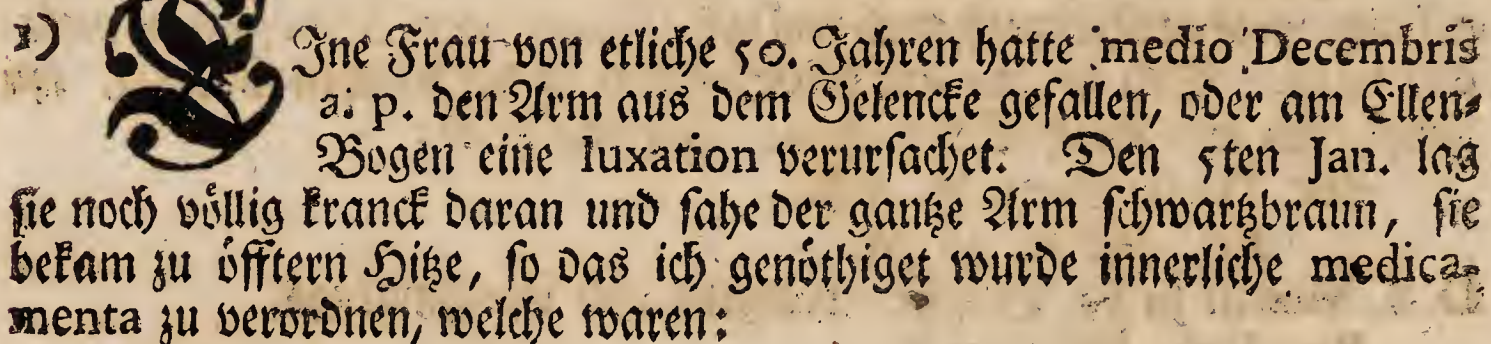 1) EIne Frau von etliche 50. Jahren hatte medio Decembris
a. p. den Arm aus dem Gelencke gefallen, oder am Ellen-
Bogen eine luxation verursachet. Den 5ten Jan. lag
sie noch völlig kranck daran und sahe der gantze Arm schwartzbraun, sie
bekam zu öfftern Hitze, so das ich genöthiget wurde innerliche medica-
menta zu verordnen, welche waren: